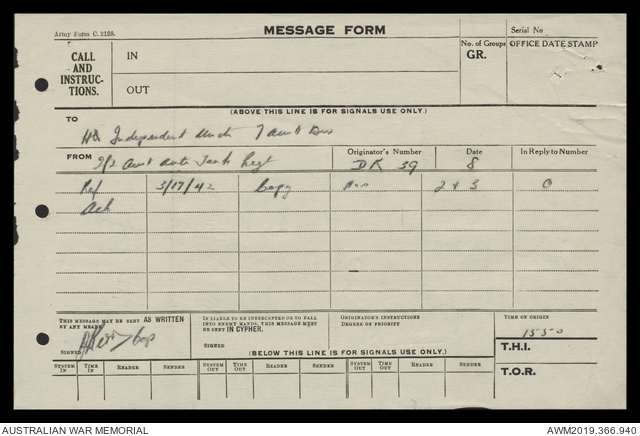 Army Form C. 2128.
MESSAGE FORM
Serial No
CALL AND INSTRUCTIONS.
IN
OUT
No. of Groups GR.
OFFICE DATE STAMP
(ABOVE THIS LINE IS FOR SIGNALS USE ONLY.)
TO
HQ Independent 7 Aust Div
FROM 2/2 Aust Anti Tank Regt
Originator's Number DR 39
Date 8
In Reply to Number
Ref 3/17/42 Copy Nos 2 & 3 O
Ack
THIS MESSAGE MAY BE SENT AS WRITTEN BY ANY MEANS
SIGNED
IF LIABLE TO BE INTERCEPTED OR TO FALL INTO ENEMY HANDS, THIS MESSAGE MUST BE SENT IN CYPHER.
SIGNED
ORIGINATOR'S INSTRUCTIONS
DEGREE OF PRIORITY
TIME OF ORIGIN
1550
T.H.I.
T.O.R.
(BELOW THIS LINE IS FOR SIGNALS USE ONLY.)
SYSTEM IN TIME IN READER SENDER SYSTEM OUT TIME OUT READER SENDER SYSTEM OUT TIME OUT READER SENDER
AUSTRALIAN WAR MEMORIAL
AWM2019.366.940